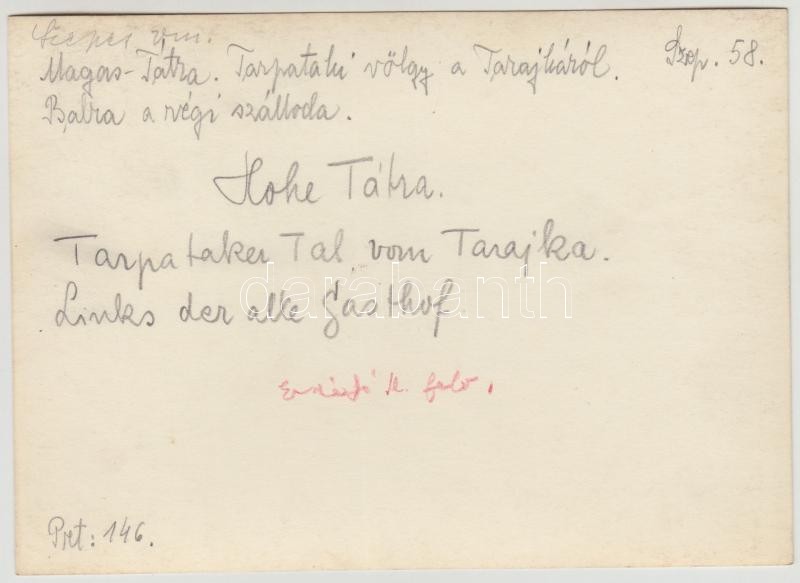 Szepes vm.
Magas-Tátra. Tarpataki völgy a Tarajkáról. Szep. 58.
Balra a régi szálloda.
Hohe Tátra.
Tarpataker Tal vom Tarajka.
Links der alte Gasthof.
darabanth
Erdődi K. felv.
Pret: 146.